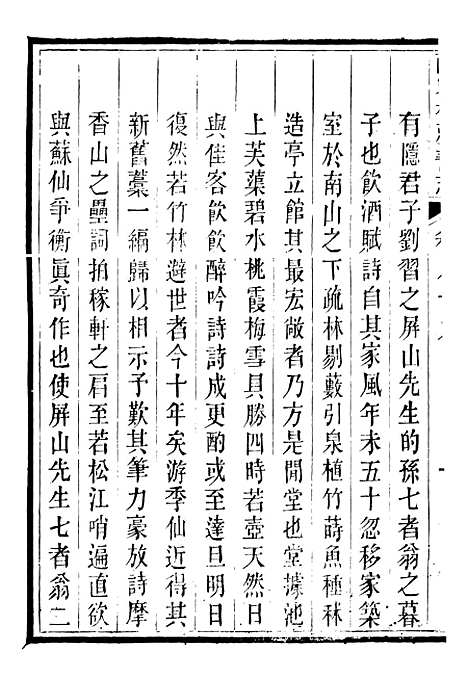 有隱君子劉習之屏山先生的孫七者翁之暮
子也飲酒賦詩自其家風年未五十忽移家築
室於南山之下疏林剔藪引泉植竹蒔魚種秫
造亭立館其最宏敞者乃方是閒堂也堂據池
上芙蕖碧水桃霞梅雪具勝四時若壺天然日
與佳客飲飲醉吟詩詩成更酌或至達旦明日
復然若竹林避世者今十年矣游季仙近得其
新舊藁一編歸以相示予歎其筆力豪放詩摩
香山之壘詞拍稼軒之肩至若松江哨遍直欲
與蘇仙爭衡眞奇作也使屏山先生七者翁二